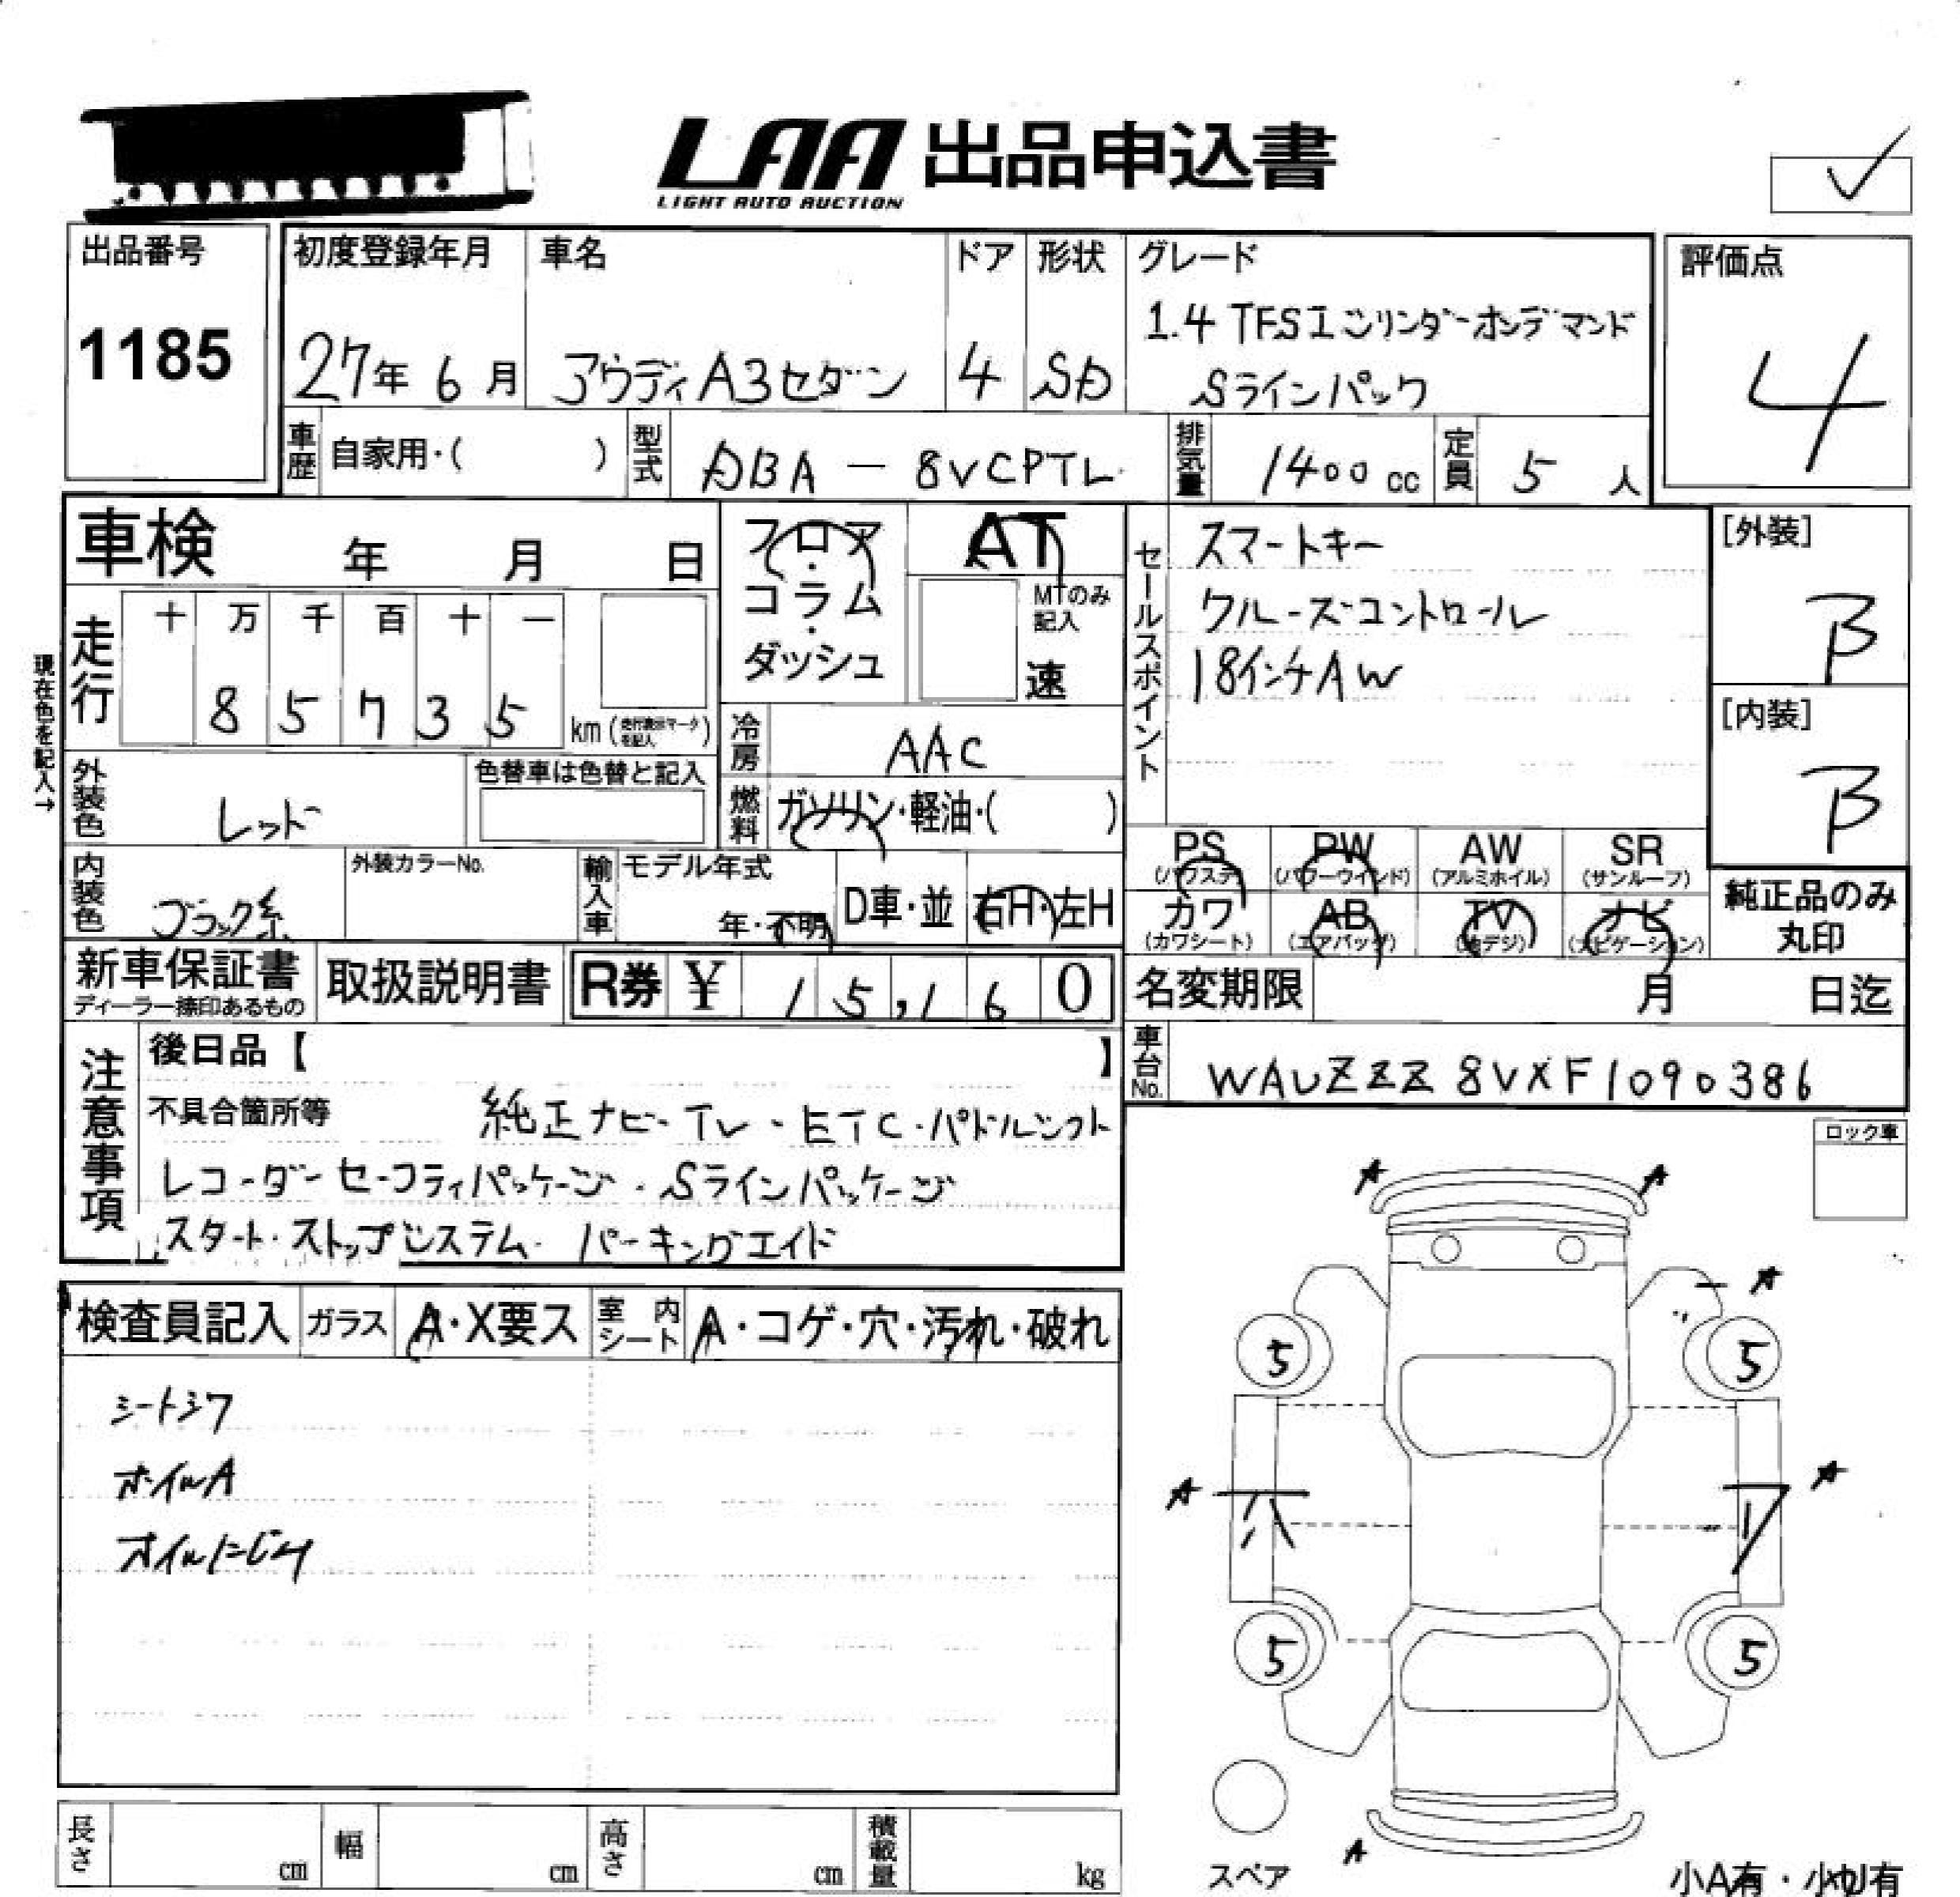 LAA 出品申込書
LIGHT AUTO AUCTION
出品番号
1185
初度登録年月
27年 6月
車名
アウディA3セダン
ドア
4
形状
SD
グレード
1.4 TFSI シリンダーオンデマンド
Sラインパック
評価点
4
車歴 自家用・( )
型式 DBA - 8VCPTL
排気量 1400 cc
定員 5 人
車検 年 月 日
フロア・コラム・ダッシュ
AT
MTのみ記入
速
セールスポイント
スマートキー
クルーズコントロール
18インチAW
[外装]
B
[内装]
B
現在色を記入→
走行
十 万 千 百 十 一
8 5 7 3 5
km (走行表示マークを記入)
冷房 AAC
外装色 レッド
色替車は色替と記入
燃料 ガソリン・軽油・( )
内装色 ブラック系
外装カラーNo.
輸入車 モデル年式
年・不明
D車・並
右H・左H
PS (パワステ)
PW (パワーウインド)
AW (アルミホイル)
SR (サンルーフ)
カワ (カワシート)
AB (エアバッグ)
TV (地デジ)
ナビ (ナビゲーション)
純正品のみ
丸印
新車保証書
ディーラー捺印あるもの
取扱説明書
R券 ¥ 15,160
名変期限 月 日迄
車台No. WAUZZZ8VXF1090386
注意事項
後日品【 】
不具合箇所等 純正ナビ・TV・ETC・パドルシフト
レコーダー セーフティパッケージ・Sラインパッケージ
スタート・ストップシステム・パーキングエイド
ロック車
検査員記入 ガラス A・X要ス 室内シート A・コゲ・穴・汚れ・破れ
シートシワ
ホイルA
オイルにじみ
A A
A
5 5
A A
5 5
A
スペア
小A有・小U有
長さ cm 幅 cm 高さ cm 積載量 kg